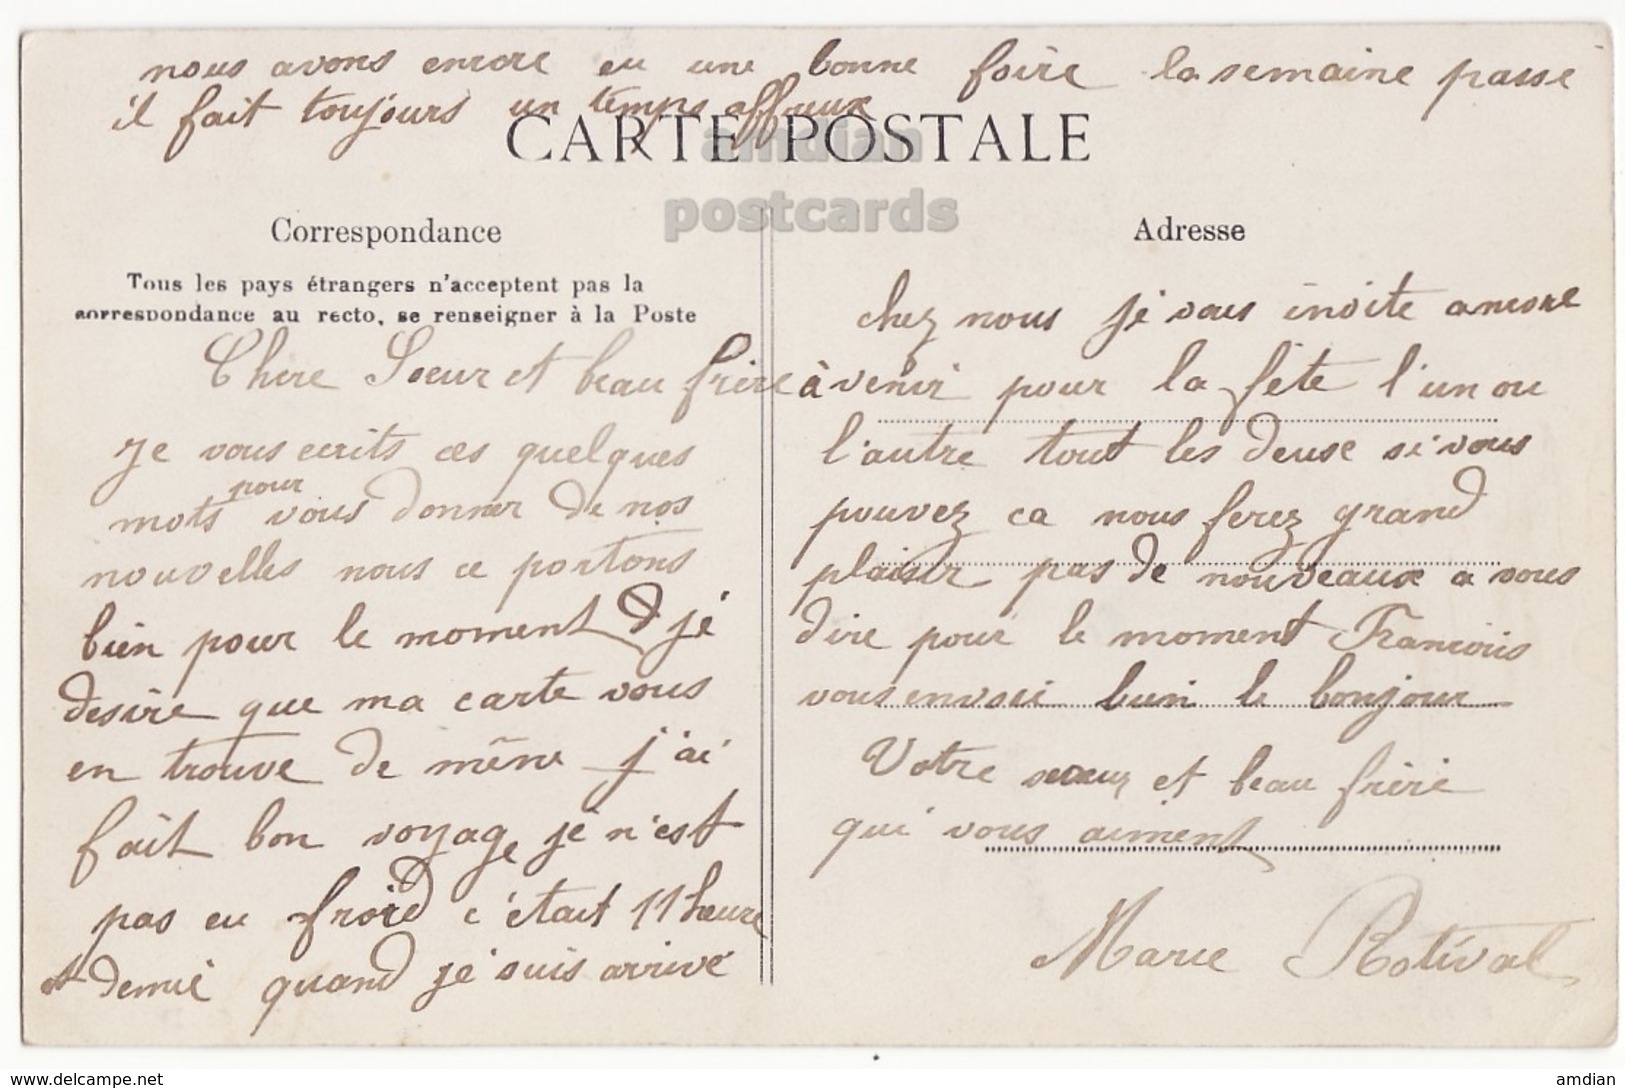 nous avons encore eu une bonne foire la semaine passe
il fait toujours un temps affreux
CARTE POSTALE
amdian
postcards
Correspondance
Tous les pays étrangers n'acceptent pas la
correspondance au recto, se renseigner à la Poste
Chere Soeur et beau frère
Je vous ecrits ces quelques
pour
mots vous donner de nos
nouvelles nous ce portons
bien pour le moment je
desire que ma carte vous
en trouve de même j'ai
fait bon voyage je n'est
pas eu froid c'était 11 heure
et demie quand je suis arrivé
Adresse
chez nous je vous invite ancore
à venir pour la fête l'un ou
l'autre tout les deuse si vous
pouvez ca nous ferez grand
plaisir pas de nouveaux a vous
dire pour le moment Francois
vous envoie bien le bonjour
Votre soeur et beau frère
qui vous aiment
Marie Rotival
www.delcampe.net
amdian